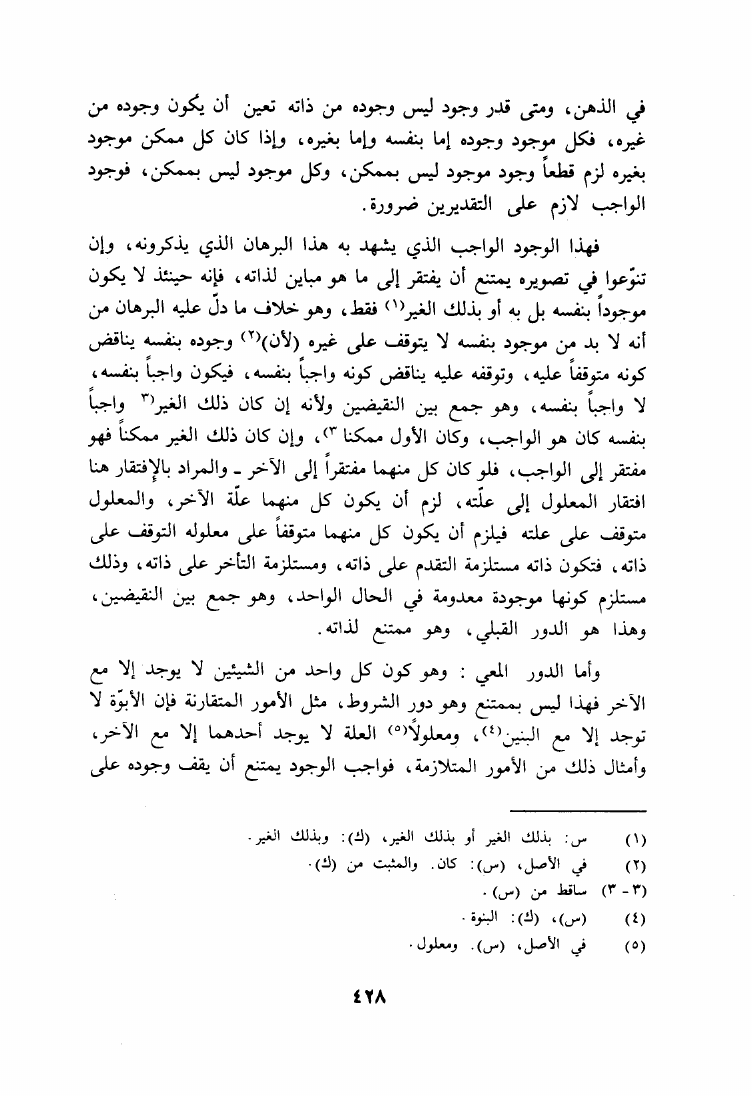 في الذهن، ومتى قدر وجود ليس وجوده من ذاته تعين أن يكون وجوده من
غيره، فكل موجود وجوده إما بنفسه وإما بغيره، وإذا كان كل ممكن موجود
بغيره لزم قطعاً وجود موجود ليس بممكن، وكل موجود ليس بممكن، فوجود
الواجب لازم على التقديرين ضرورة.
فهذا الوجود الواجب الذي يشهد به هذا البرهان الذي يذكرونه، وإن
تنوّعوا في تصويره يمتنع أن يفتقر إلى ما هو مباين لذاته، فإنه حينئذ لا يكون
موجوداً بنفسه بل به أو بذلك الغير(١) فقط، وهو خلاف ما دلّ عليه البرهان من
أنه لا بد من موجود بنفسه لا يتوقف على غيره (لأن)(٢) وجوده بنفسه يناقض
كونه متوقفاً عليه، وتوقفه عليه يناقض كونه واجباً بنفسه، فيكون واجباً بنفسه،
لا واجباً بنفسه، وهو جمع بين النقيضين ولأنه إن كان ذلك الغير(٣ واجباً
بنفسه كان هو الواجب، وكان الأول ممكنا ٣)، وإن كان ذلك الغير ممكناً فهو
مفتقر إلى الواجب، فلو كان كل منهما مفتقراً إلى الآخر - والمراد بالإفتقار هنا
افتقار المعلول إلى علّته، لزم أن يكون كل منهما علّة الآخر، والمعلول
متوقف على علته فيلزم أن يكون كل منهما متوقفاً على معلوله التوقف على
ذاته، فتكون ذاته مستلزمة التقدم على ذاته، ومستلزمة التأخر على ذاته، وذلك
مستلزم كونها موجودة معدومة في الحال الواحد، وهو جمع بين النقيضين،
وهذا هو الدور القبلي، وهو ممتنع لذاته.
وأما الدور المعي : وهو كون كل واحد من الشيئين لا يوجد إلا مع
الآخر فهذا ليس بممتنع وهو دور الشروط، مثل الأمور المتقارنة فإن الأبوّة لا
توجد إلا مع البنين(٤)، ومعلولاً(٥) العلة لا يوجد أحدهما إلا مع الآخر،
وأمثال ذلك من الأمور المتلازمة، فواجب الوجود يمتنع أن يقف وجوده على
(١) س: بذلك الغير أو بذلك الغير، (ك): وبذلك الغير.
(٢) في الأصل، (س): كان. والمثبت من (ك).
(٣ - ٣) ساقط من (س).
(٤) (س)، (ك): البنوة.
(٥) في الأصل، (س). ومعلول.
٤٢٨